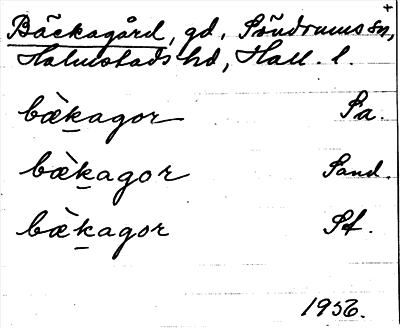 Bäckagård, gd, Söndrums sn,
Halmstads hd, Hall. l.
bæ̀kagor Sa.
bæ̀kagor Sand.
bæ̀kagor Sf.
1956.